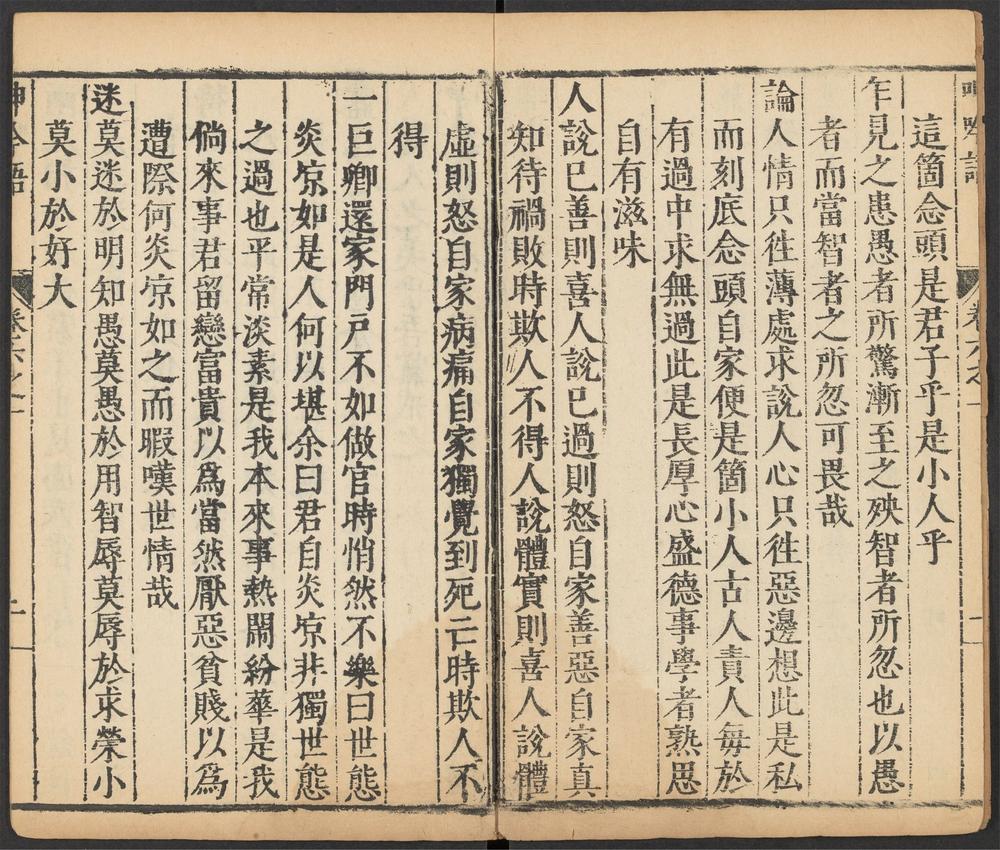 這箇念頭是君子乎是小人乎
乍見之患愚者所驚漸至之殃智者所忽也以愚
者而當智者之所忽可畏哉
論人情只徃薄處求說人心只徃惡邊想此是私
而刻底念頭自家便是箇小人古人責人每於
有過中求無過此是長厚心盛德事學者熟思
自有滋味
人說已善則喜人說已過則怒自家善惡自家真
知待禍敗時欺人不得人說體實則喜人說體
虛則怒自家病痛自家獨覺到死亡時欺人不
得
一巨卿還家門戸不如做官時悄然不樂曰世態
炎凉如是人何以堪余曰君自炎凉非獨世態
之過也平常淡素是我本來事熱閙紛華是我
倘來事君留戀富貴以爲當然厭惡貧賤以爲
遭際何炎凉如之而暇嘆世情哉
迷莫迷於明知愚莫愚於用智辱莫辱於求榮小
莫小於好大
呻吟語
卷六之一
二